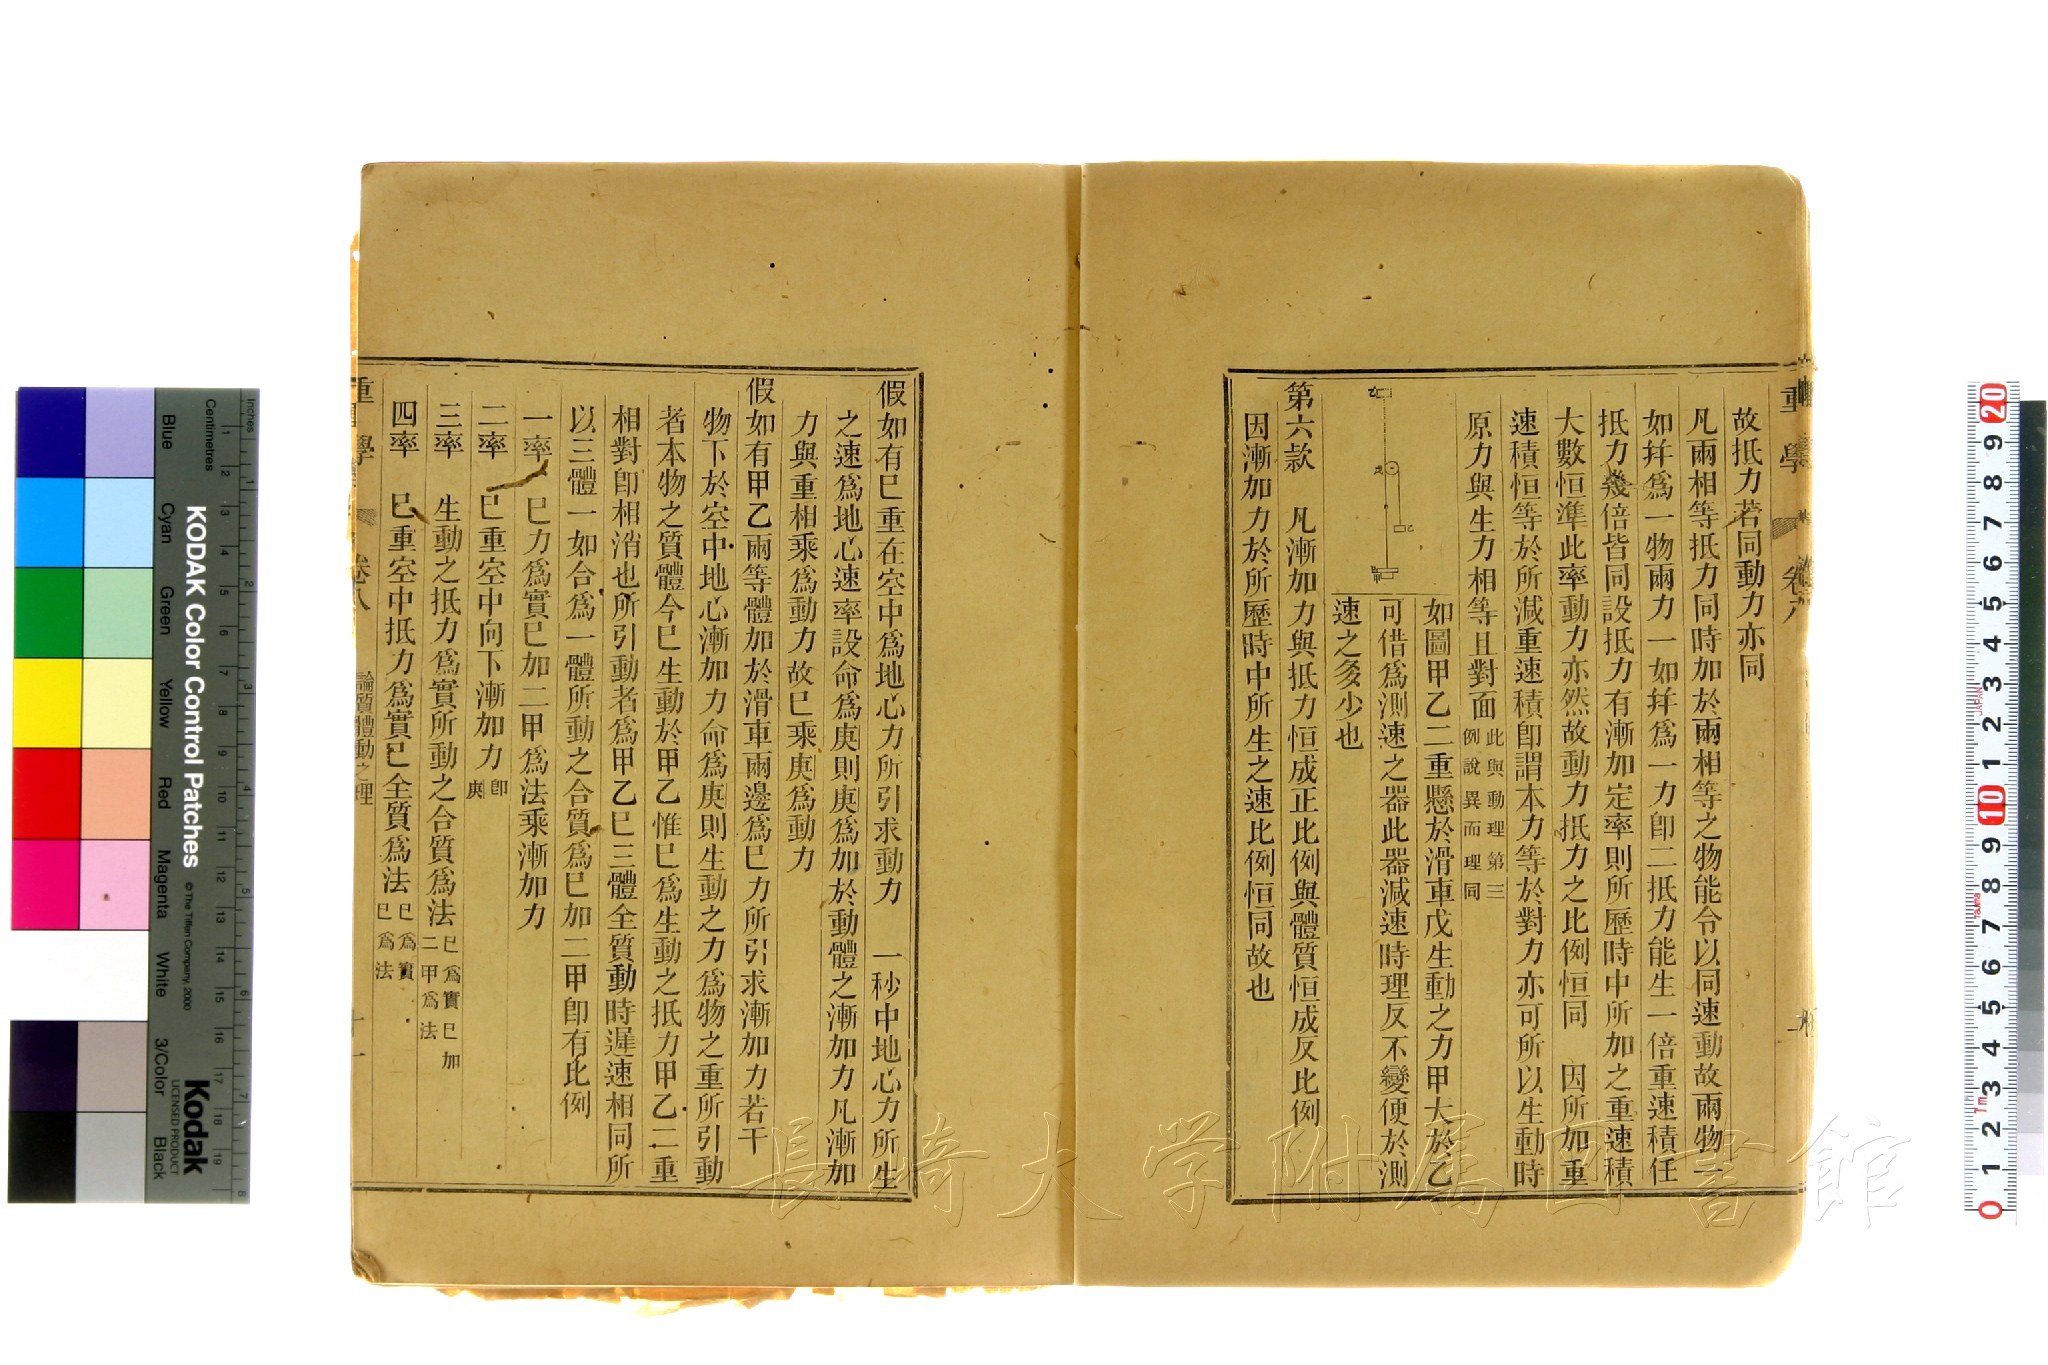 重學
卷八
故抵力若同動力亦同
凡兩相等抵力同時加於兩相等之物能令以同速動故兩物一
如幷爲一物兩力一如幷爲一力卽二抵力能生一倍重速積任
抵力幾倍皆同設抵力有漸加定率則所歷時中所加之重速積
大數恒準此率動力亦然故動力抵力之比例恒同　因所加重
速積恒等於所減重速積卽謂本力等於對力亦可所以生動時
原力與生力相等且對面此與動理第三例說異而理同
如圖甲乙二重懸於滑車戊生動之力甲大於乙
可借爲測速之器此器減速時理反不變便於測
速之多少也
第六款　凡漸加力與抵力恒成正比例與體質恒成反比例
因漸加力於所歷時中所生之速比例恒同故也
假如有巳重在空中爲地心力所引求動力　一秒中地心力所生
之速爲地心速率設命爲庚則庚爲加於動體之漸加力凡漸加
力與重相乘爲動力故巳乘庚爲動力
假如有甲乙兩等體加於滑車兩邊爲巳力所引求漸加力若干
物下於空中地心漸加力命爲庚則生動之力爲物之重所引動
者本物之質體今巳生動於甲乙惟巳爲生動之抵力甲乙二重
相對卽相消也所引動者爲甲乙巳三體全質動時遲速相同所
以三體一如合爲一體所動之合質爲巳加二甲卽有比例
一率　巳力爲實巳加二甲爲法乘漸加力
二率　巳重空中向下漸加力卽庚
三率　生動之抵力爲實所動之合質爲法巳爲實巳加二甲爲法
四率　巳重空中抵力爲實巳全質爲法巳爲實巳爲法
重學
卷八
論質體動之理
十一
KODAK Color Control Patches
© The Tiffen Company, 2000
Kodak
LICENSED PRODUCT
Blue
Cyan
Green
Yellow
Red
Magenta
White
3/Color
Black
Inches
1 2 3 4 5 6 7 8
Centimetres
1 2 3 4 5 6 7 8 9 10 11 12 13 14 15 16 17 18 19
20 9 8 7 6 5 4 3 2 1 10 9 8 7 6 5 4 3 2 1 0
JAPAN
Tajima
1m
長崎大学附属図書館